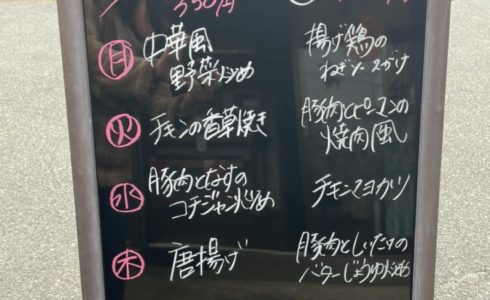 550円
月
中華風
野菜炒め
揚げ鶏の
ねぎソースがけ
火
チキンの香草焼き
豚肉とピーマンの
焼肉風
水
豚肉となすの
コチジャン炒め
チキンマヨカツ
木
唐揚げ
豚肉としいたけの
バターじょうゆ炒め